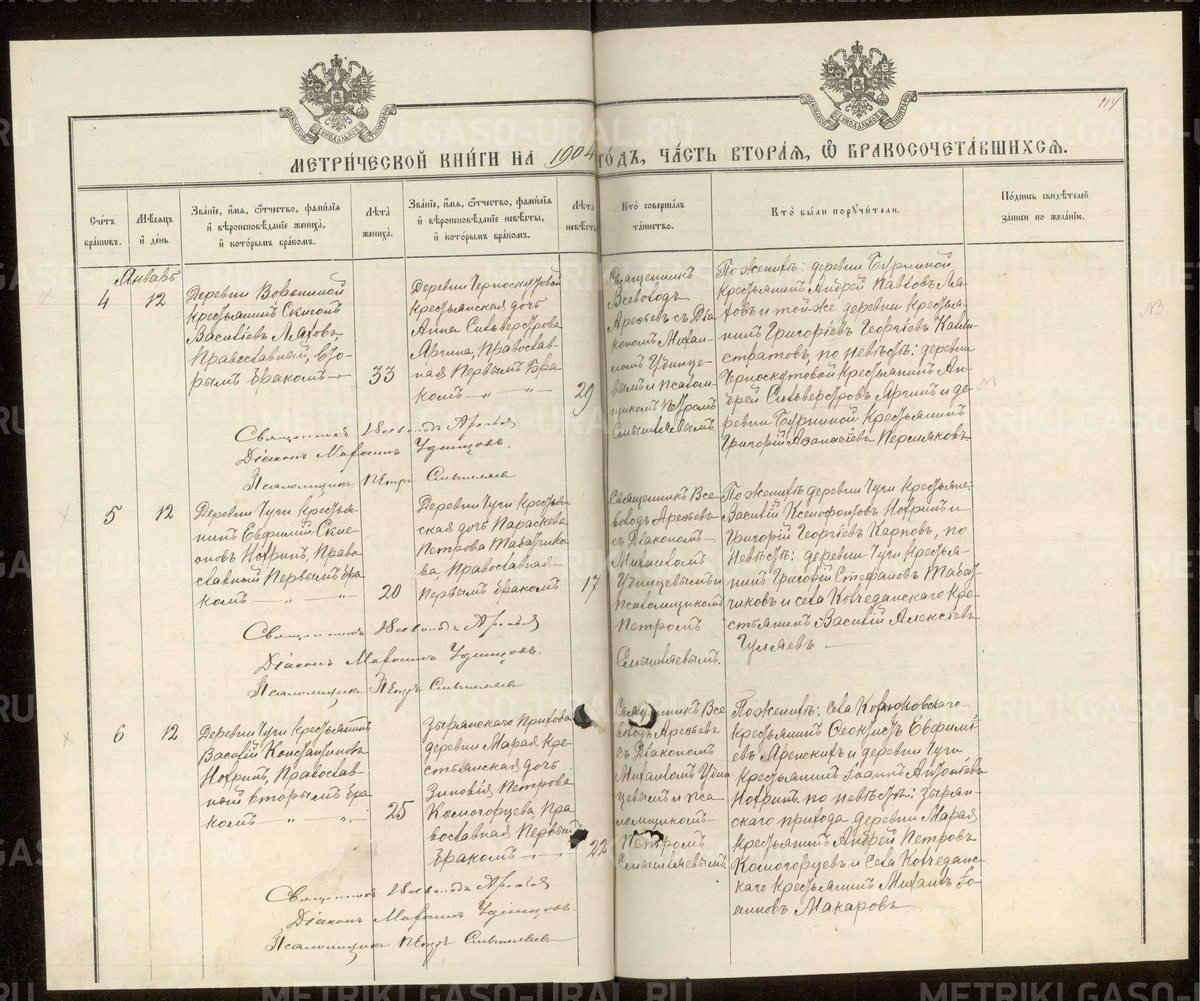 МЕТРИЧЕСКОЙ КНИГИ НА 1904 ГОДЪ, ЧАСТЬ ВТОРАЯ, Ѡ БРАКОСОЧЕТАВШИХСЯ.
114
Счетъ браковъ.
Мѣсяцъ и день.
Званіе, имя, отчество, фамилія и вѣроисповѣданіе жениха, и которымъ бракомъ.
Лѣта жениха.
Званіе, имя, отчество, фамилія и вѣроисповѣданіе невѣсты, и которымъ бракомъ.
Лѣта невѣсты
Кто совершалъ таинство.
Кто были поручители.
Подпись свидѣтелей записи по желанію.
Январь
4
12
Деревни
Крестьянинъ
Василіевъ Ляховъ,
Православный, вто-
рымъ бракомъ
33
Деревни Черноскутовой
Крестьянская дочь
Анна Сильверстрова
Аргина, Православ-
ная Первымъ Бра-
комъ
29
Священникъ
Всеволодъ
Арефьевъ съ Діа
кономъ Михаи-
ломъ Удинце-
вымъ и псалом-
щикомъ Петромъ
Смышляевымъ.
По женихѣ: деревни Бурниной
Крестьянинъ Андрей Павловъ Ля-
ховъ и той же деревни Крестья-
нинъ Григорій Георгіевъ Кали-
стратовъ, по невѣстѣ: деревни
Черноскутовой Крестьянинъ Ан-
дрей Сильверстровъ Аргинъ и де-
ревни Бурниной Крестьянинъ
Григорій Аѳанасіевъ Пермяковъ
Священникъ Всеволодъ Арефьев
Діаконъ Михаилъ Удинцовъ.
Псаломщикъ Петръ Смышляевъ
5
12
Деревни Чуги Крестья-
нинъ Евфимій
Нохринъ, Право-
славной Первымъ бра
комъ
20
Деревни Чуги Крестьян
ская дочь Параскева
Петрова Табатчико-
ва, Православная
Первымъ бракомъ
17
Священникъ Все
володъ Арефьевъ
съ Діакономъ
Михаиломъ
Удинцевымъ и
псаломщикомъ
Петромъ
Смышляевымъ.
По женихѣ деревни Чуги Крестьяне
Василій Ксенофонтовъ Нохринъ и
Григорій Георгіевъ Карповъ, по
Невѣстѣ: деревни Чуги Крестья-
нинъ Григорій Стефановъ Табат-
чиковъ и села Колчеданскаго Кре-
стьянинъ Василій Алексѣевъ
Гуляевъ
Священникъ Всеволодъ Арефьев
Діаконъ Михаилъ Удинцовъ.
Псаломщикъ Петръ Смышляевъ
6
12
Деревни Чуги Крестьянинъ
Василій Константиновъ
Нохринъ, Православ-
ной вторымъ бра
комъ
25
Зырянскаго Прихода
деревни Марая Кре-
стьянская дочь
Зиновія Петрова
Комогорцева, Пра
вославная Первымъ
бракомъ
22
Священникъ Все
володъ Арефьевъ
съ Діакономъ
Михаиломъ Удин
цевымъ и пса
ломщикомъ
Петромъ
Смышляевымъ.
По женихѣ: села
Крестьянинъ Ѳеоктистъ Евфимі-
евъ и деревни Чуги
Крестьянинъ Іоаннъ Антоніевъ
Нохринъ по невѣстѣ: Зырян-
скаго прихода деревни Марая
Крестьянинъ Андрей Петровъ
Комогорцевъ и села Колчеданс-
каго Крестьянинъ Михаилъ Іо-
анновъ Макаровъ
Священникъ Всеволодъ Арефьев
Діаконъ Михаилъ Удинцовъ
Псаломщикъ Петръ Смышляевъ
METRIKI.GASO-URAL.RU